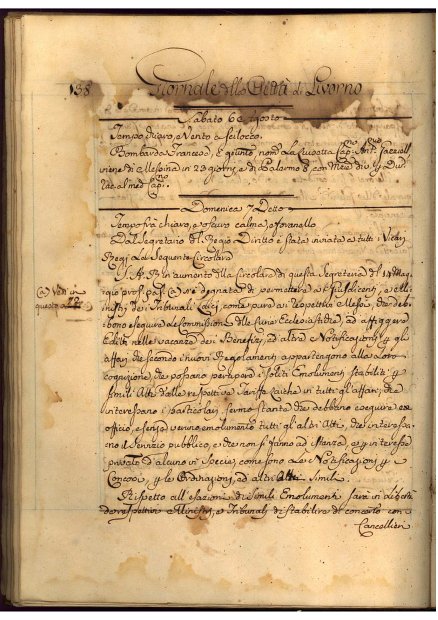 138 Giornale della Città di Livorno
Sabato 6 Agosto
Tempo chiaro, e Vento a Scilocco.
Bombarda Francese, è giunto nom.a La Cap.o Ant.o
viene di Messina in 23 giorni, e di Palermo 8 con Merci div.e p. Div.
rac. al med.o Cap.o
Domenica 7 Detto
Tempo frà chiaro, e oscuro calma, e
Dal Segretario del Regio Diritto è stata inviata a tutti i Vicarj
Regj la seguente Circolare
S. A. R. in aumento della Circolare di questa Segreteria del 14 Mag-
(a) Vedi in
gio pros. pas. (a) si è degnata di permettere a i Giusdicenti, e Mi-
questo a 72
nistri dei Tribunali Laici, come pure ai respettivi Messi, che deb-
bono eseguire le Commissioni delle Curie Ecclesiastiche, ad affiggere
Editti nelle vacanze dei Benefizj, ed altre Notificazioni p. gli
affari, che secondo i nuovi Regolamenti appartengono alla loro
cognizione, che possano percipere i soliti Emolumenti stabiliti p.
simili Atti dalle respettive Tariffe Laiche in tutti gli affari, che
interessano i particolari, fermo stante che debbano eseguire ex
officio, e senza verun emolumento tutti gli altri Atti, che interessa-
no il Servizio pubblico, e che non si fanno ad Istanza, e p. interesse
privato d'alcuno in Specie, come sono le Notificazioni p.
Concorsi, p. le Ordinazioni, ed altri Atti Simili.
Rispetto all'esazioni di simili Emolumenti sarà in libertà
dei respettivi Ministri, e Tribunali di stabilire di concerto con
Cancellieri